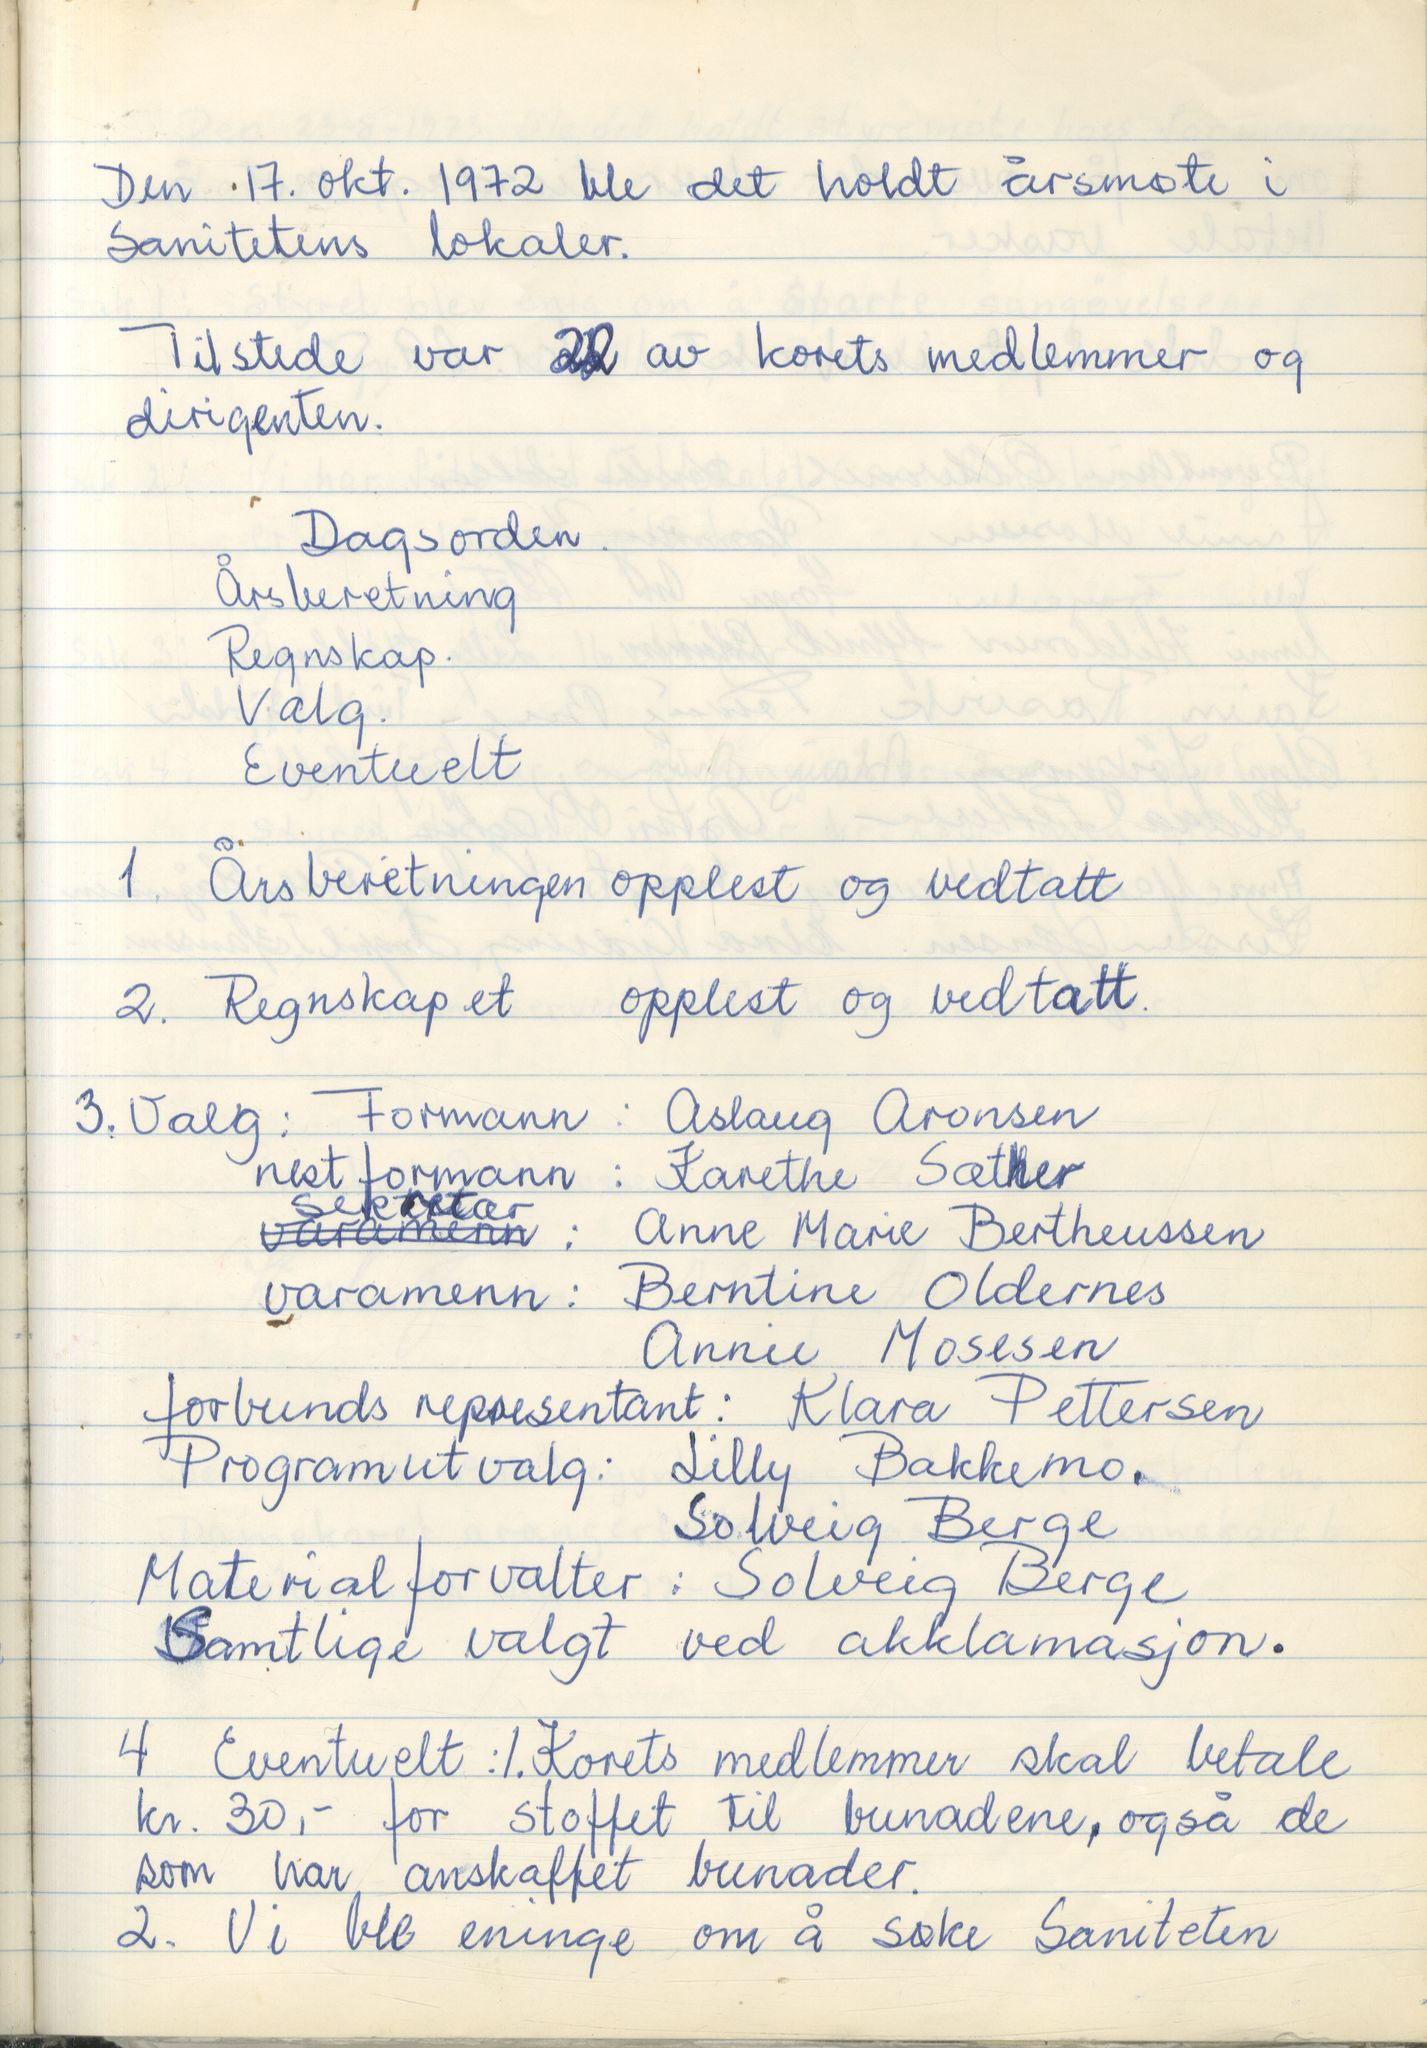 Den 17. okt. 1972 ble det holdt årsmøte i
Sanitetens lokaler.
Tilstede var 22 av korets medlemmer og
dirigenten.
Dagsorden.
Årsberetning
Regnskap.
Valg.
Eventuelt
1. Årsberetningen opplest og vedtatt
2. Regnskapet opplest og vedtatt.
3. Valg: Formann: Aslaug Aronsen
nestformann: Karethe Sæther
sekretær
varamenn: Anne Marie Bertheussen
varamenn: Berntine Oldernes
Annie Mosesen
forbunds representant: Klara Pettersen
Programutvalg: Lilly Bakkemo.
Solveig Berge
Materialforvalter: Solveig Berge
Samtlige valgt ved akklamasjon.
4 Eventuelt: 1. Korets medlemmer skal betale
kr. 30,- for stoffet til bunadene, også de
som har anskaffet bunader.
2. Vi ble eninge om å søke Saniteten